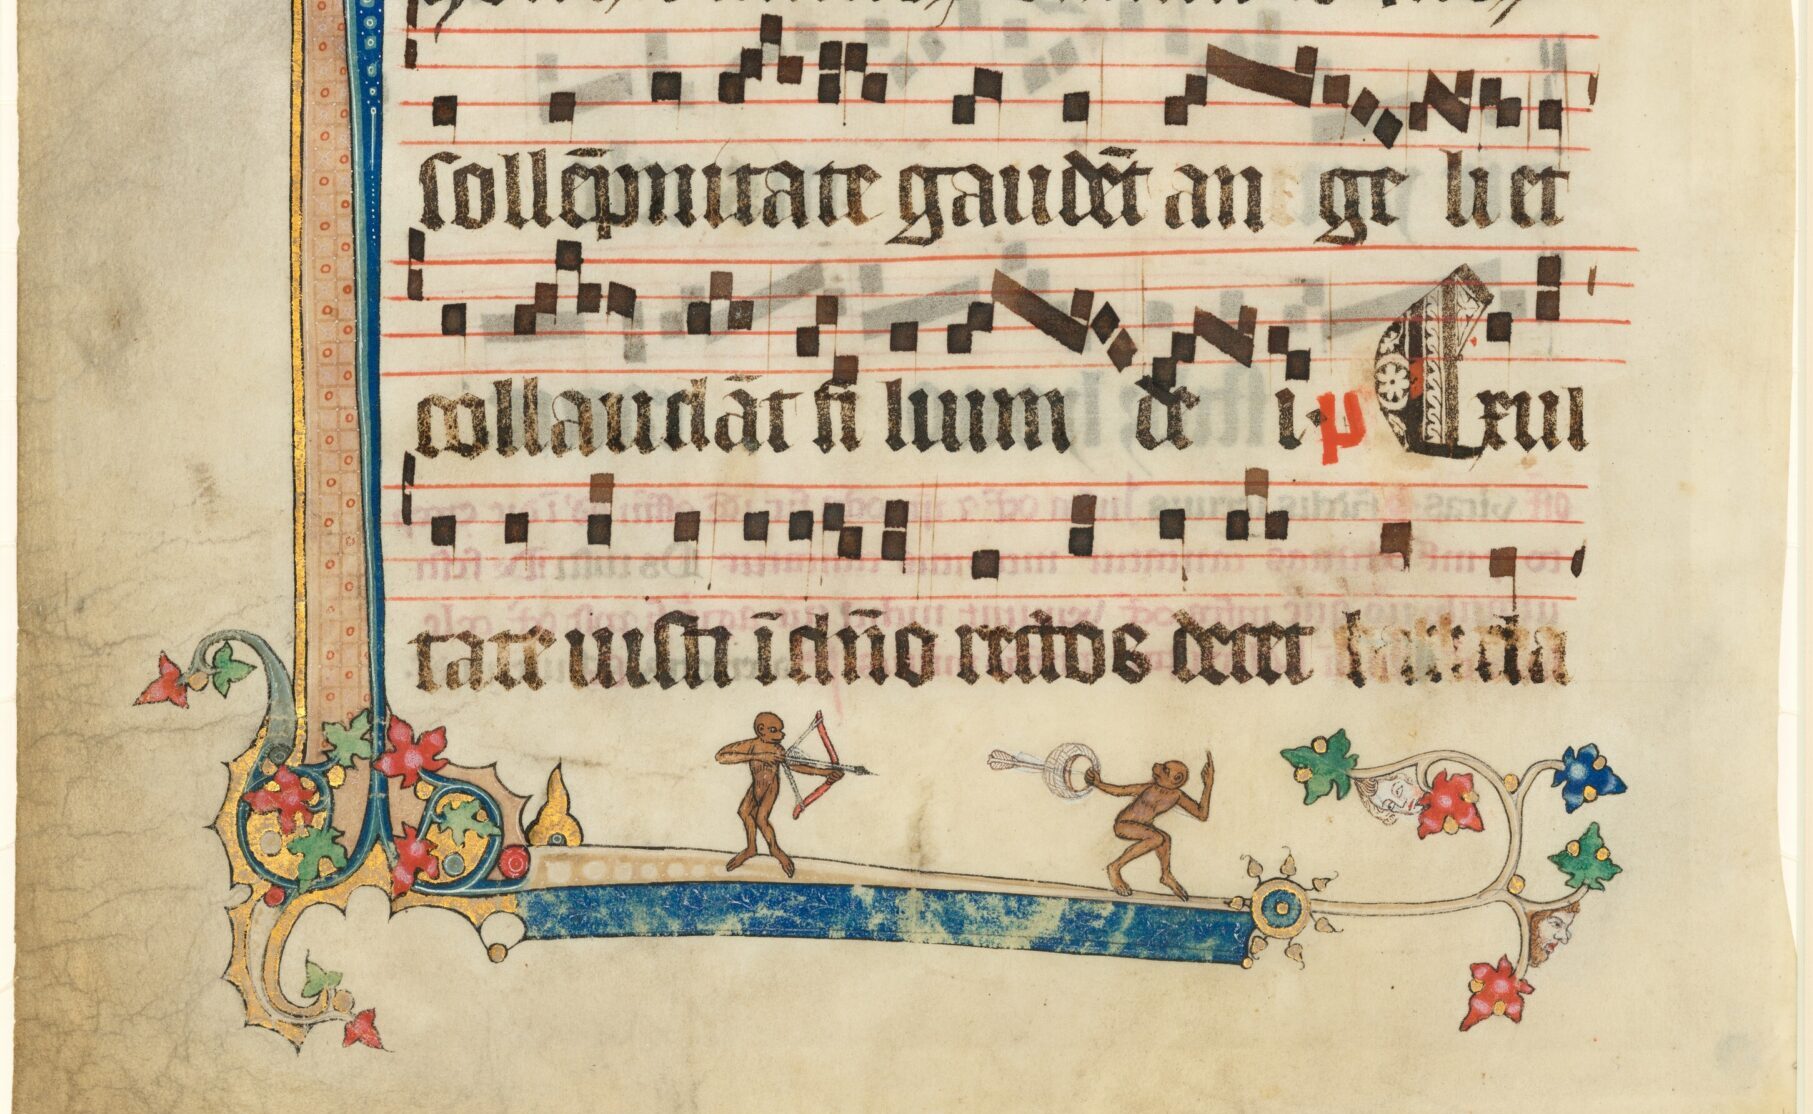 sollēpnitate gaudēt an ge li et
collaudāt fi lium de i. p Exul
tate iusti ī dn̄o rectos decet